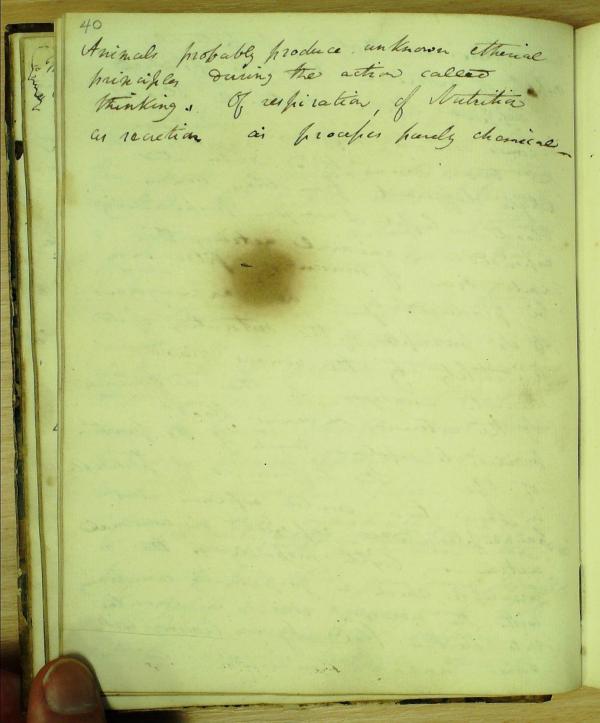 40
Animals probably produce unknown etherial
principles during the action called
thinking. Of respiration, of Nutrition
as secretion as processes purely chemical